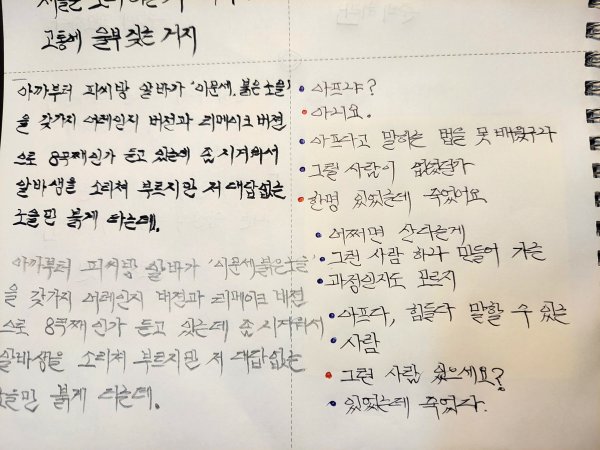 고통에 울부 짖는 거지
아까부터 피씨방 알바가 '이문세, 붉은 노을'
을 갖가지 어레인지 버전과 리메이크 버전
으로 8곡째인가 듣고 있는데 좀 시끄러워서
알바생을 소리쳐 부르지만 저 대답없는
노을만 붉게 타는데.
아까부터 피씨방 알바가 '이문세, 붉은노을'
을 갖가지 어레인지 버전과 리메이크 버전
으로 8곡째인가 듣고 있는데 좀 시끄러워서
알바생을 소리쳐 부르지만 저 대답없는
노을만 붉게 타는데.
아프냐?
아니요.
아프다고 말하는 법을 못 배웠구나
그럴 사람이 없었던가
한명 있었는데 죽었어요
어쩌면 산다는게
그런 사람 하나 만들어 가는
과정인지도 모르지
아프다, 힘들다 말할 수 있는
사람
그런 사람 있으세요?
있었는데 죽었다.